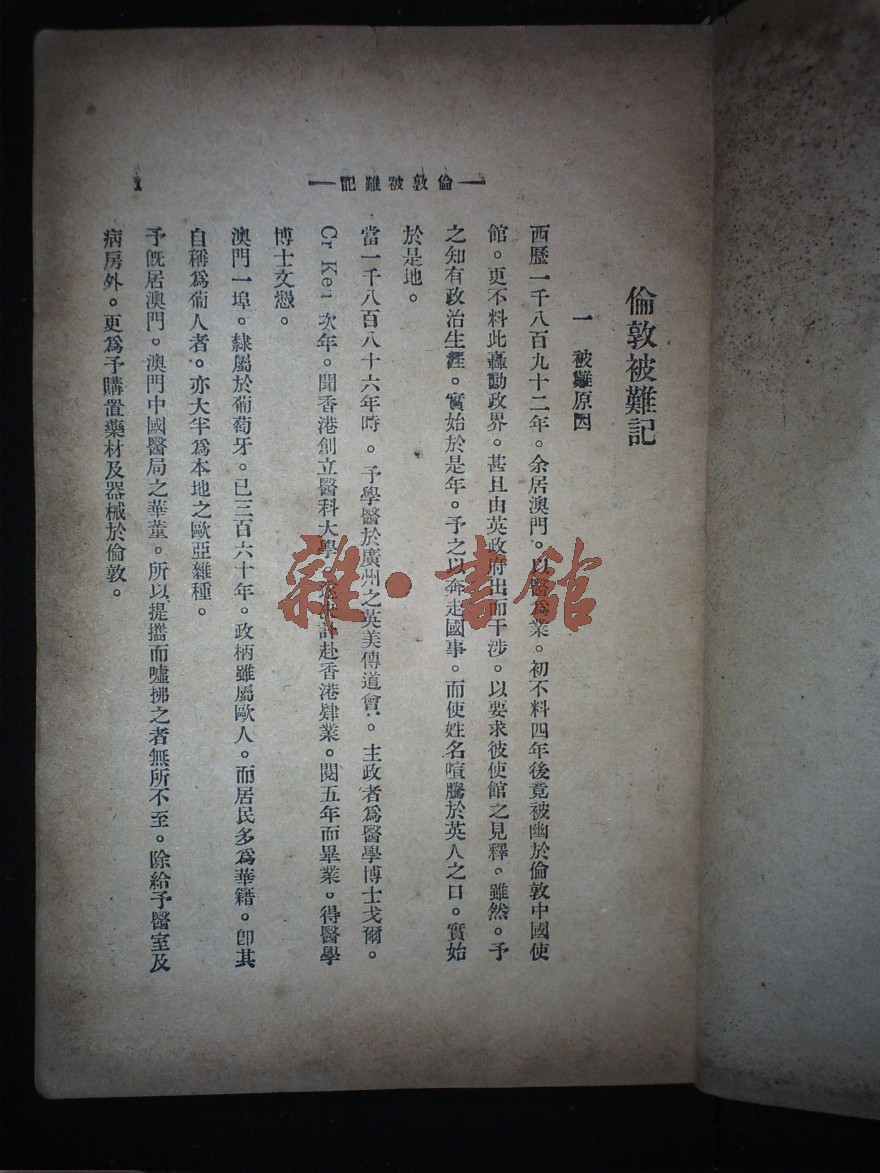 倫敦被難記
一 被難原因
西歷一千八百九十二年。余居澳門。以醫爲業。初不料四年後竟被幽於倫敦中國使
館。更不料此轟動政界。甚且由英政府出而干涉。以要求彼使館之見釋。雖然。予
之知有政治生涯。實始於是年。予之以奔走國事。而使姓名喧騰於英人之口。實始
於是地。
當一千八百八十六年時。予學醫於廣州之英美傳道會。主政者爲醫學博士戈爾。
Cr Ke 次年。聞香港創立醫科大學。計赴香港肄業。閱五年而畢業。得醫學
博士文憑。
澳門一埠。隸屬於葡萄牙。已三百六十年。政柄雖屬歐人。而居民多爲華籍。卽其
自稱爲葡人者。亦大半爲本地之歐亞雜種。
予旣居澳門。澳門中國醫局之華董。所以提攜而噓拂之者無所不至。除給予醫室及
病房外。更爲予購置藥材及器械於倫敦。
—倫敦被難記—
1
雜·書館